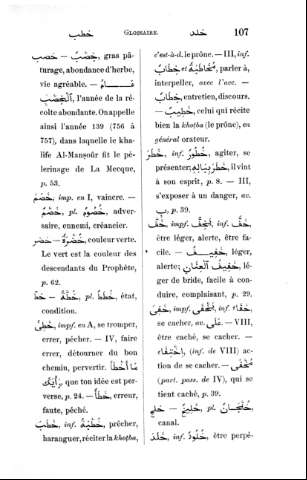 خطب GLOSSAIRE. خلد 107
خصب — خِصْبٌ, gras pâ-
turage, abondance d'herbe,
vie agréable. —
اَلْخِصْبُ, l'année de la ré-
colte abondante. On appelle
ainsi l'année 139 (756 à
757), dans laquelle le kha-
life Al-Manṣoûr fit le pè-
lerinage de La Mecque,
p. 53.
خَصَمَ, imp. en I, vaincre. —
خَصْمٌ, pl. خُصُومٌ, adver-
saire, ennemi, créancier.
خضر — خُضْرَةٌ, couleur verte.
Le vert est la couleur des
descendants du Prophète,
p. 62.
خطّ — خُطَّةٌ, pl. خُطَطٌ, état,
condition.
خَطِئَ, impf. en A, se tromper,
errer, pécher. — IV, faire
errer, détourner du bon
chemin, pervertir. مَا أَخْطَأَ
رَأْيَكَ, que ton idée est per-
verse, p. 24. — خَطَأٌ, erreur,
faute, péché.
خَطَبَ, inf. خُطْبَةٌ, prêcher,
haranguer, réciter la khoṭba,
c'est-à-d. le prône. — III, inf.
مُخَاطَبَةٌ et خِطَابٌ, parler à,
interpeller, avec l'acc. —
خِطَابٌ, entretien, discours.
— خَطِيبٌ, celui qui récite
bien la khoṭba (le prône), en
général orateur.
خَطَرَ, inf. خُطُورٌ, agiter, se
présenter; خَطَرَ بِبَالِهِ, il vint
à son esprit, p. 8. — III,
s'exposer à un danger, av.
ب, p. 39.
خَفَّ, impf. يَخِفُّ, inf. خِفَّةٌ,
être léger, alerte, être fa-
cile. — خَفِيفٌ, léger,
alerte; خَفِيفُ الْعِنَانِ, lé-
ger de bride, facile à con-
duire, complaisant, p. 29.
خَفِيَ, impf. يَخْفَى, inf. خَفَاءٌ,
se cacher, av. عَلَى. — VIII,
être caché, se cacher. —
اِخْتِفَاءٌ, (inf. de VIII) ac-
tion de se cacher. — مُخْفًى
(part. pass. de IV), qui se
tient caché, p. 39.
خلج — خَلِيجٌ, pl. خُلْجَانٌ,
canal.
خَلَدَ, inf. خُلُودٌ, être perpé-